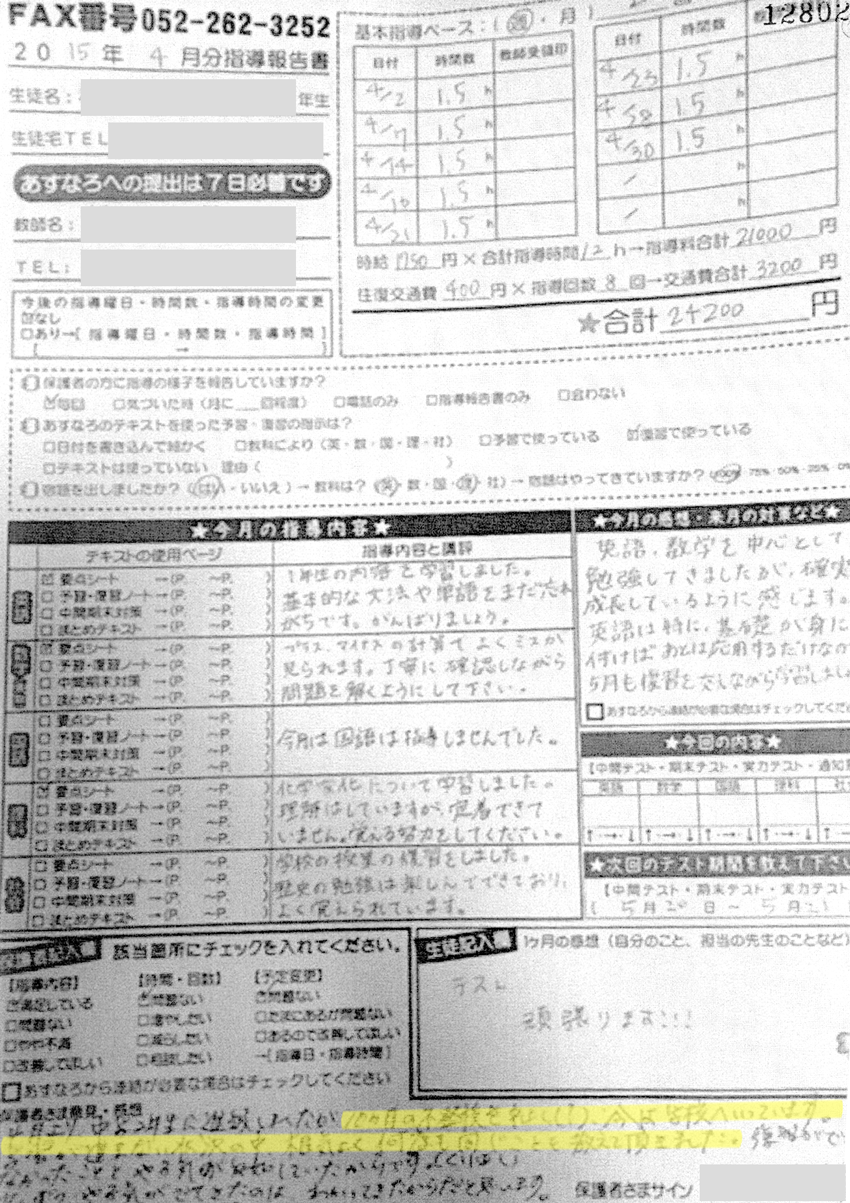 FAX番号052-262-3252
12802
2015年 4月分指導報告書
生徒名: 年生
生徒宅TEL
あすなろへの提出は7日必着です
教師名:
TEL:
今後の指導曜日・時間数・指導時間の変更
☑なし
□あり→[指導曜日・時間数・指導時間]
( → )
基本指導ペース:(週・月)
日付 時間数 教師受領印
4/2 1.5 h
4/7 1.5 h
4/14 1.5 h
4/16 1.5 h
4/21 1.5 h
日付 時間数
4/23 1.5 h
4/28 1.5 h
4/30 1.5 h
/ h
/ h
時給1750円×合計指導時間12h→指導料合計21000円
往復交通費400円×指導回数8回→交通費合計3200円
★合計24200円
保護者の方に指導の様子を報告していますか?
☑毎回 □気づいた時(月に 回程度) □電話のみ □指導報告書のみ □会わない
あすなろのテキストを使った予習・復習の指示は?
□日付を書き込んで細かく □教科により(英・数・国・理・社) □予習で使っている ☑復習で使っている
□テキストは使っていない 理由( )
宿題を出しましたか?(はい・いいえ)→教科は?(英・数・国・理・社)→宿題はやってきていますか?(100%・75%・50%・25%・0%
★今月の指導内容★
テキストの使用ページ 指導内容と講評
☑要点シート →(P. ~P. )
□予習・復習ノート→(P. ~P. )
□中間期末対策 →(P. ~P. )
□まとめテキスト →(P. ~P. )
1年生の内容を学習しました。
基本的な文法や単語をまだ忘れ
がちです。がんばりましょう。
☑要点シート →(P. ~P. )
□予習・復習ノート→(P. ~P. )
□中間期末対策 →(P. ~P. )
□まとめテキスト →(P. ~P. )
プラス、マイナスの計算でよくミスが
見られます。丁寧に確認しながら
問題を解くようにして下さい。
□要点シート →(P. ~P. )
□予習・復習ノート→(P. ~P. )
□中間期末対策 →(P. ~P. )
□まとめテキスト →(P. ~P. )
今月は国語は指導しませんでした。
☑要点シート →(P. ~P. )
□予習・復習ノート→(P. ~P. )
□中間期末対策 →(P. ~P. )
□まとめテキスト →(P. ~P. )
化学変化について学習しました。
理解はしていますが、定着できて
いません。覚える努力をしてください。
□要点シート →(P. ~P. )
□予習・復習ノート→(P. ~P. )
□中間期末対策 →(P. ~P. )
□まとめテキスト →(P. ~P. )
学校の授業の復習をしました。
歴史の勉強は楽しんでできており、
よく覚えられています。
★今月の感想・来月の対策など★
英語、数学を中心として
勉強してきましたが、確実
成長しているように感じます。
英語は特に、基礎が身に
付けばあとは応用するだけなの
5月も復習を交えながら学習しまし
□あすなろから連絡が必要な場合はチェックしてくだ
★今回の内容★
[中間テスト・期末テスト・実力テスト・通知
英語 数学 国語 理科 社
↑・→・↓ ↑・→・↓ ↑・→・↓ ↑・→・↓ ↑・→
★次回のテスト期間を教えて下さい
[中間テスト・期末テスト・実力テスト
( 5月20日~5月21
保護者記入欄 該当箇所にチェックを入れてください。
[指導内容] [時間・回数] [予定変更]
☑満足している ☑問題ない ☑問題ない
□問題ない □増やしたい □たまにあるが問題ない
□やや不満 □減らしたい □あるので改善してほしい
□改善してほしい □相談したい →[指導日・指導時間]
□あすなろから連絡が必要な場合はチェックしてください
生徒記入欄 1ヶ月の感想(自分のこと、担当の先生のことなど)
テスト
頑張ります!!!
保護者さま意見・感想
4月より中学2年生に進級しましたが 10ヶ月の不登校を 今は学校へ行っています。
根気よく何度も同じことも教えて頂きました。
なかったこと
やる気がでてきたのは、わかってきたからだと思います。
保護者さまサイン